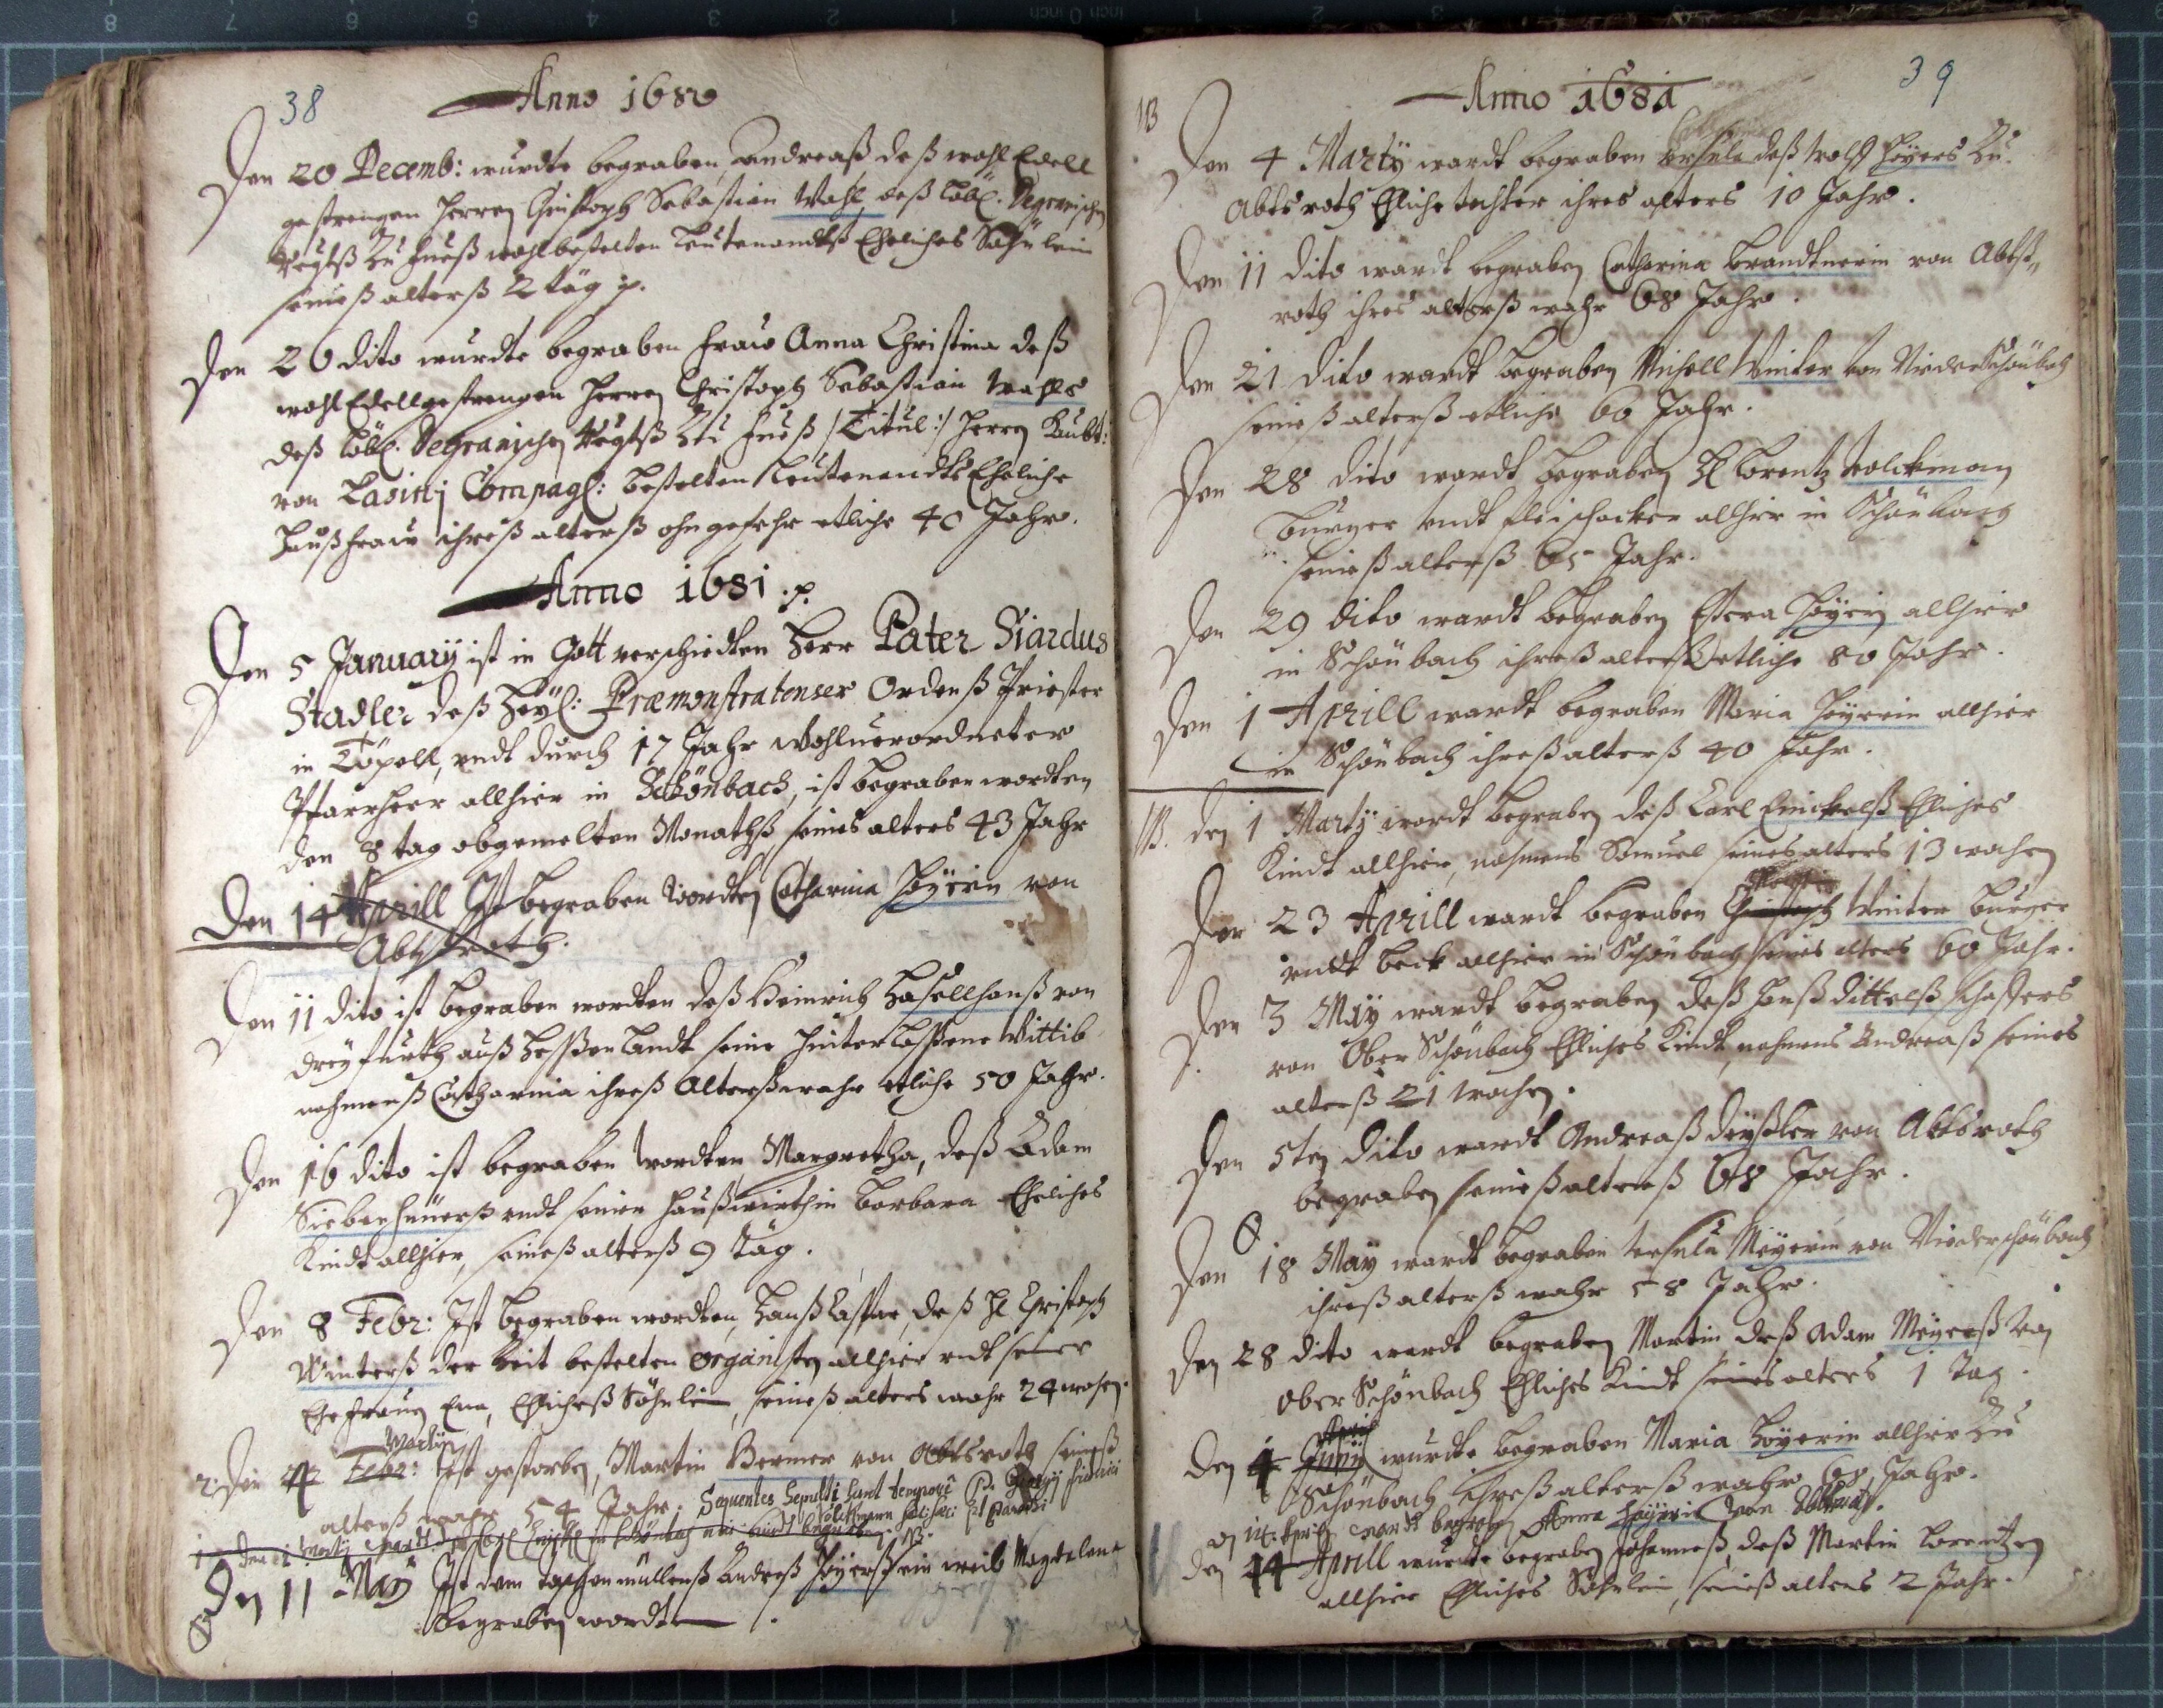 38
Anno 1680
Den 20 Decemb: wurdte begraben, Andreaß deß wohl Edell
gestrengen Herren Christoph Sebastian Wahl, deß löbl. Degranischen
Regtß zu Fueß wohlbestelten Leutenandtß Eheliches Söhnlein
seineß alterß 2 täg p.
Den 26 dito wurdte begraben Fraw Anna Christina deß
wohl Edellgestrengen Herren Christoph Sebastian Wahls
deß löbl. Degranischen Regtß zu Fueß /:Titul:/ Herren
von Compagl: bestelten Leutenandts Eheliche
Haußfraw ihreß alterß ohngefehr etliche 40 Jahr.
Anno 1681 .p.
Den 5 January ist in Gott verschiedten Herr Pater Siardus
Stadler deß Heyl: Præmonstratenser Ordenß Priester
in Töpell, undt durch 17 Jahr wohlverordneter
Pfarrherr allhier in Schönbach, ist begraben wordten
den 8 tag obgemelten Monathß seines alters 43 Jahr
Den 14 Aprill Ist begraben wordten Catharina Höyerin von
Abtsroth.
Den 11 dito ist begraben wordten deß Heinrich Hasellhanß von
Dreyfurth auß Hessenlandt seine hinterlassene Wittib
nahmenß Catharina ihreß Alterß wahr etliche 50 Jahr.
Den 16 dito ist begraben wordten Margretha, deß Adam
Siebenhünerß undt seiner Haußwirthin Barbara Eheliches
Kindt allhier, seineß alterß 9 täg.
Den 8 Febr: Ist begraben wordten, Hanß Caspar, deß H Christoph
Winterß der Zeit bestelten Organisten allhier undt seiner
Ehefrauen Eva, Ehlicheß Söhnlein, seineß alters wahr 24 wochen.
Martij
2. Den 4 Febr: Ist gestorben, Martin Bermer von Abtsroth seineß
alterß wahr 54 Jahr. Sequentes sepulti sunt tempore P. Georgij
Den 11 May Ist dem Andreß Höyerß sein weib Magdalena
begraben wordten.
39
Anno 1681
NB
Den 4 Martij wardt begraben Ursula deß Wolf Höyers zu
Abtsroth Ehliche tochter ihres alters 10 Jahr.
Den 11 dito wardt begraben Catharina Brandtnerin von Abtß,,
roth ihres alterß wahr 68 Jahr.
Den 21 dito wardt begraben Michell Winter von Niederschönbach
seineß alterß etliche 60 Jahr.
Den 28 dito wardt begraben H Lorentz Volckman
Burger undt Fleischacker allhier in Schönbach
seineß alterß 65 Jahr.
Den 29 dito wardt begraben Höyerin allhier
in Schönbach ihreß alterß etliche 80 Jahr.
Den 1 Aprill wardt begraben Maria Höyerin allhier
in Schönbach ihreß alterß 40 Jahr.
NB. den 1 Martij wardt begraben deß Carl Enickelß Ehliches
Kindt allhier, nahmens Samuel seines alters 13 wochen
Den 23 Aprill wardt begraben Christoph Winter Burger
undt Beck allhier in Schönbach seines alters 60 Jahr.
Den 3 May wardt begraben deß Hanß Dittelß Schafers
von Ober Schönbach Ehliches Kindt, nahmens Andreaß seines
alterß 21 wochen.
Den 5ten dito wardt Andreaß von Abtsroth
begraben seineß alterß 68 Jahr.
Den 18 May wardt begraben Ursula Meyerin von Niederschönbach
ihreß alterß wahr 58 Jahr.
Den 28 dito wardt begraben Martin deß Adam Meyerß von
Ober Schönbach Ehliches Kindt seines alters 1 Tag.
April
Den 4 Juny wurdte begraben Maria Höyerin allhier zu
Schönbach ihreß alterß wahr 68 Jahr.
14. April wardt begraben Anna Höyerin von Abtsroth.
Den 14 Aprill wurdte begraben Johanneß, deß Martin Lorentzen
allhier Ehliches Söhnlein, seineß alters 2 Jahr.